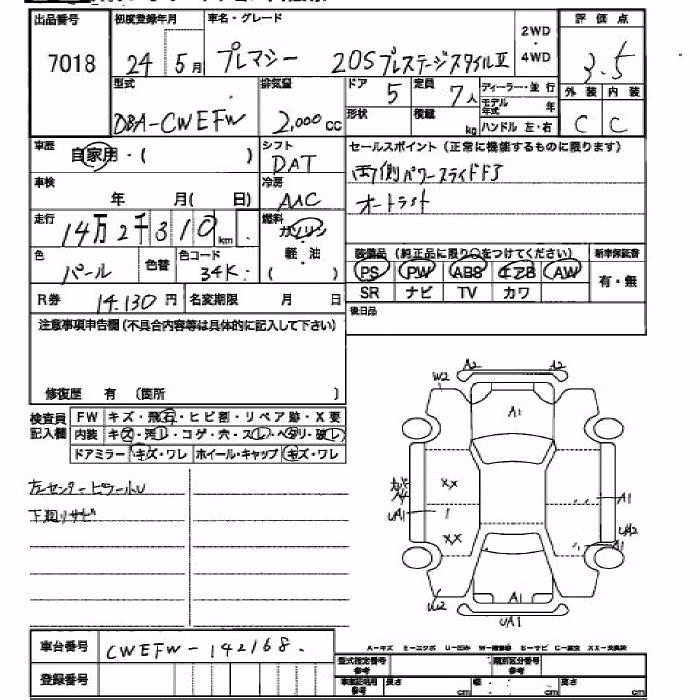 出品番号 初度登録年月 車名・グレード 2WD・4WD 評価点
7018 24年5月 プレマシー 20SプレステージスタイルⅡ 3.5
型式 排気量 ドア 定員 ディーラー・並行 外装 内装
DBA-CWEFW 2,000cc 5 7人 モデル年式 年 C C
形状 積載 kg ハンドル 左・右
車歴 自家用・( ) シフト DAT セールスポイント(正常に機能するものに限ります)
両側パワースライドドア
車検 年 月( 日) 冷房 AAC
オートライト
走行 14万2千310km 燃料 ガソリン・軽油( )
色 パール 色替 色コード 34K 装備品(純正品に限り○をつけてください) 新車保証書
PS PW ABS エアB AW 有・無
SR ナビ TV カワ
R券 14.130円 名変期限 月 日 後日品
注意事項申告欄(不具合内容等は具体的に記入して下さい)
修復歴 有 (箇所 )
検査員記入欄 FW キズ・飛石・ヒビ割・リペア跡・X要
内装 キズ・汚レ・コゲ・穴・スレ・ヘタリ・破レ
ドアミラー キズ・ワレ ホイール・キャップ キズ・ワレ
左センターピラーハレU
下廻りサビ
A2 A2
W2
A1
XX
A1
UA1 1
UA2
XX A1
W2 A1
UA1
A-キズ E-エクボ U-凹み W-補修跡 S-サビ C-腐食 XX-交換済
車台番号 CWEFW-142168.
登録番号
型式指定番号 参考 類別区分番号 参考
車車証明用 参考 長さ cm 幅 cm 高さ cm